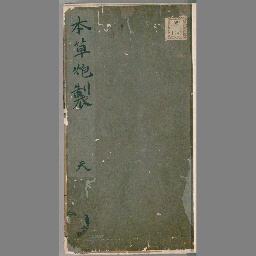 本草炮製
天